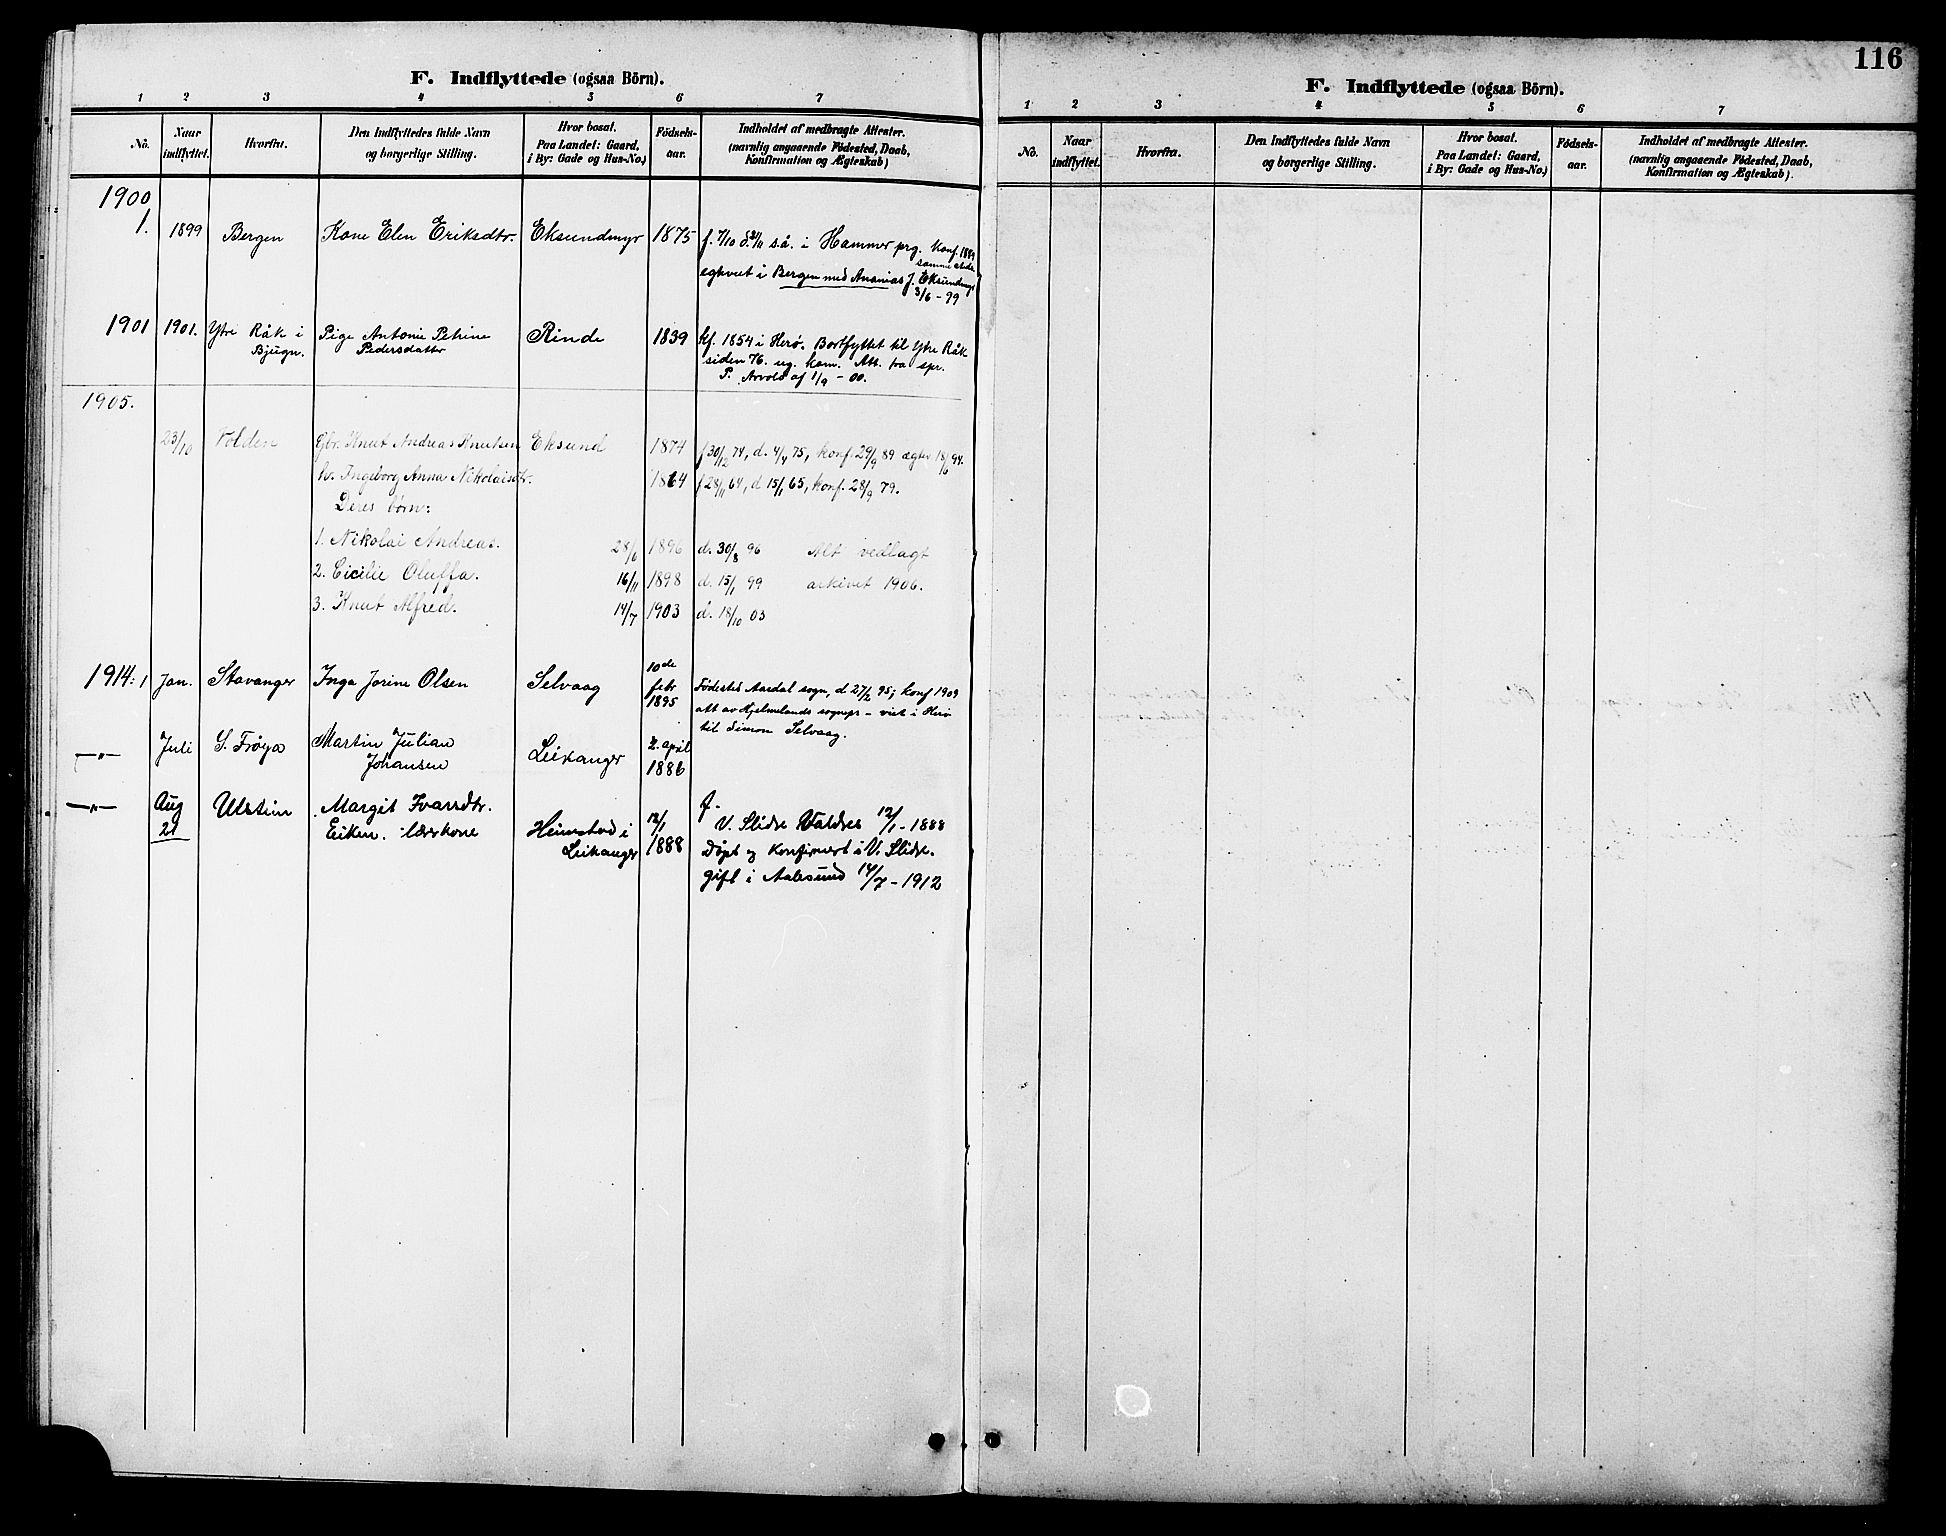 F. Indflyttede (ogsaa Börn).
1 2 3 4 5 6 7
No. Naar indflyttet. Hvorfra. Den Indflyttedes fulde Navn og borgerlige Stilling. Hvor bosat. Paa Landet: Gaard, i By: Gade og Hus-No.) Fødsels-aar. Indholdet af medbragte Attester. (navnlig angaaende Fødested, Daab, Konfirmation og Ægteskab)
1900
1. 1899 Bergen Kone Elen Eriksdtr. Eksundmyr 1875 f. 7/10 d. 21/11 s.å. i Hammer prg. Konf. 1889
samme sted
egtviet i Bergen med Ananias J. Eksundmyr
3/6 - 99
1901 1901. Ytre Råk i Pige Antonie Petrine Rinde 1839 kf. 1854 i Herö. Bortfyttet til Ytre Råk
Bjugn. Pedersdatter siden 76. ug. kom. Att. fra spr.
P. Arvold af 1/9 - 00.
1905.
23/10 Volden Gbr. Knut Andreas Knutsen Eksund 1874 f 30/12 74, d. 4/4 75, konf. 29/9 89 ægtev. 18/6 94.
h. Ingeborg Anna Nikolaisdtr. 1864 f 28/11 64, d 15/1 65, konf. 28/9 79.
Deres børn:
1. Nikolai Andreas. 28/6 1896 d. 30/8 96 Alt vedlagt
2. Cicilie Oluffa. 16/11 1898 d. 15/1 99 arkivet 1906.
3. Knut Alfred. 14/7 1903 d. 18/10 03
1914: 1 Jan. Stavanger Inga Jorine Olsen Selvaag 10de febr 1895 Fødested Aardal sogn, d 27/2 95; konf 1909
att av Hjelmelands sognepr - viet i Herö
til Simon Selvaag.
—"— Juli S. Frøya Martin Julian Johansen Leikanger 2. april 1886
—"— Aug 21 Ulstein Margit Ivarsdtr. Eiken. lærerkone Heimstad i Leikanger 12/1 1888 f.
V. Slidre Valdres 12/1 - 1888
Døpt og konfirmert i V. Slidre.
gift i Aalesund 14/7 - 1912
116
F. Indflyttede (ogsaa Börn).
1 2 3 4 5 6 7
No. Naar indflyttet. Hvorfra. Den Indflyttedes fulde Navn og borgerlige Stilling. Hvor bosat. Paa Landet: Gaard, i By: Gade og Hus-No.) Fødsels-aar. Indholdet af medbragte Attester. (navnlig angaaende Fødested, Daab, Konfirmation og Ægteskab).